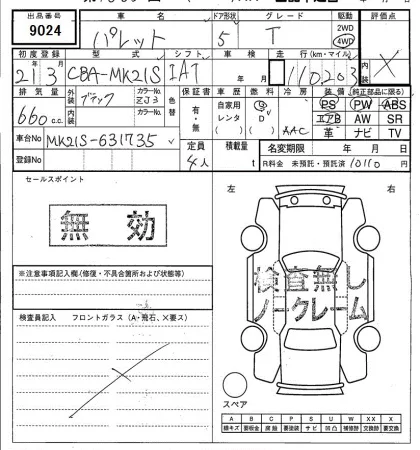 出品番号 車名 ドア形状 グレード 駆動 評価点
9024 パレット 5 T 2WD 4WD ×
初度登録 型式 シフト 車検 走行(km・マイル)
21 3 CBA-MK21S IAT 年 月 110,203
排気量 外装 カラーNo. 色替 保証書 車歴 燃料 冷房 装備(純正部品に限る)
660 c.c. ブラック ZJ3 有・無 自家用 レンタ G D AAC PS PW ABS
内装 カラーNo. エアB AW SR
革 ナビ TV
車台No MK21S-631735 定員 積載量 名変期限 年 月 日
登録No 4人 t R料金 未預託・預託済 10110 円
セールスポイント
無効
左 右
検査無し
ノークレーム
※注意事項記入欄(修復・不具合箇所および状態等)
検査員記入 フロントガラス(A・飛石、X要ス)
スペア
A B C P S U W XX X
線キズ 要板金 腐蝕 要塗装 サビ 凹凸 補修跡 交換 要交換